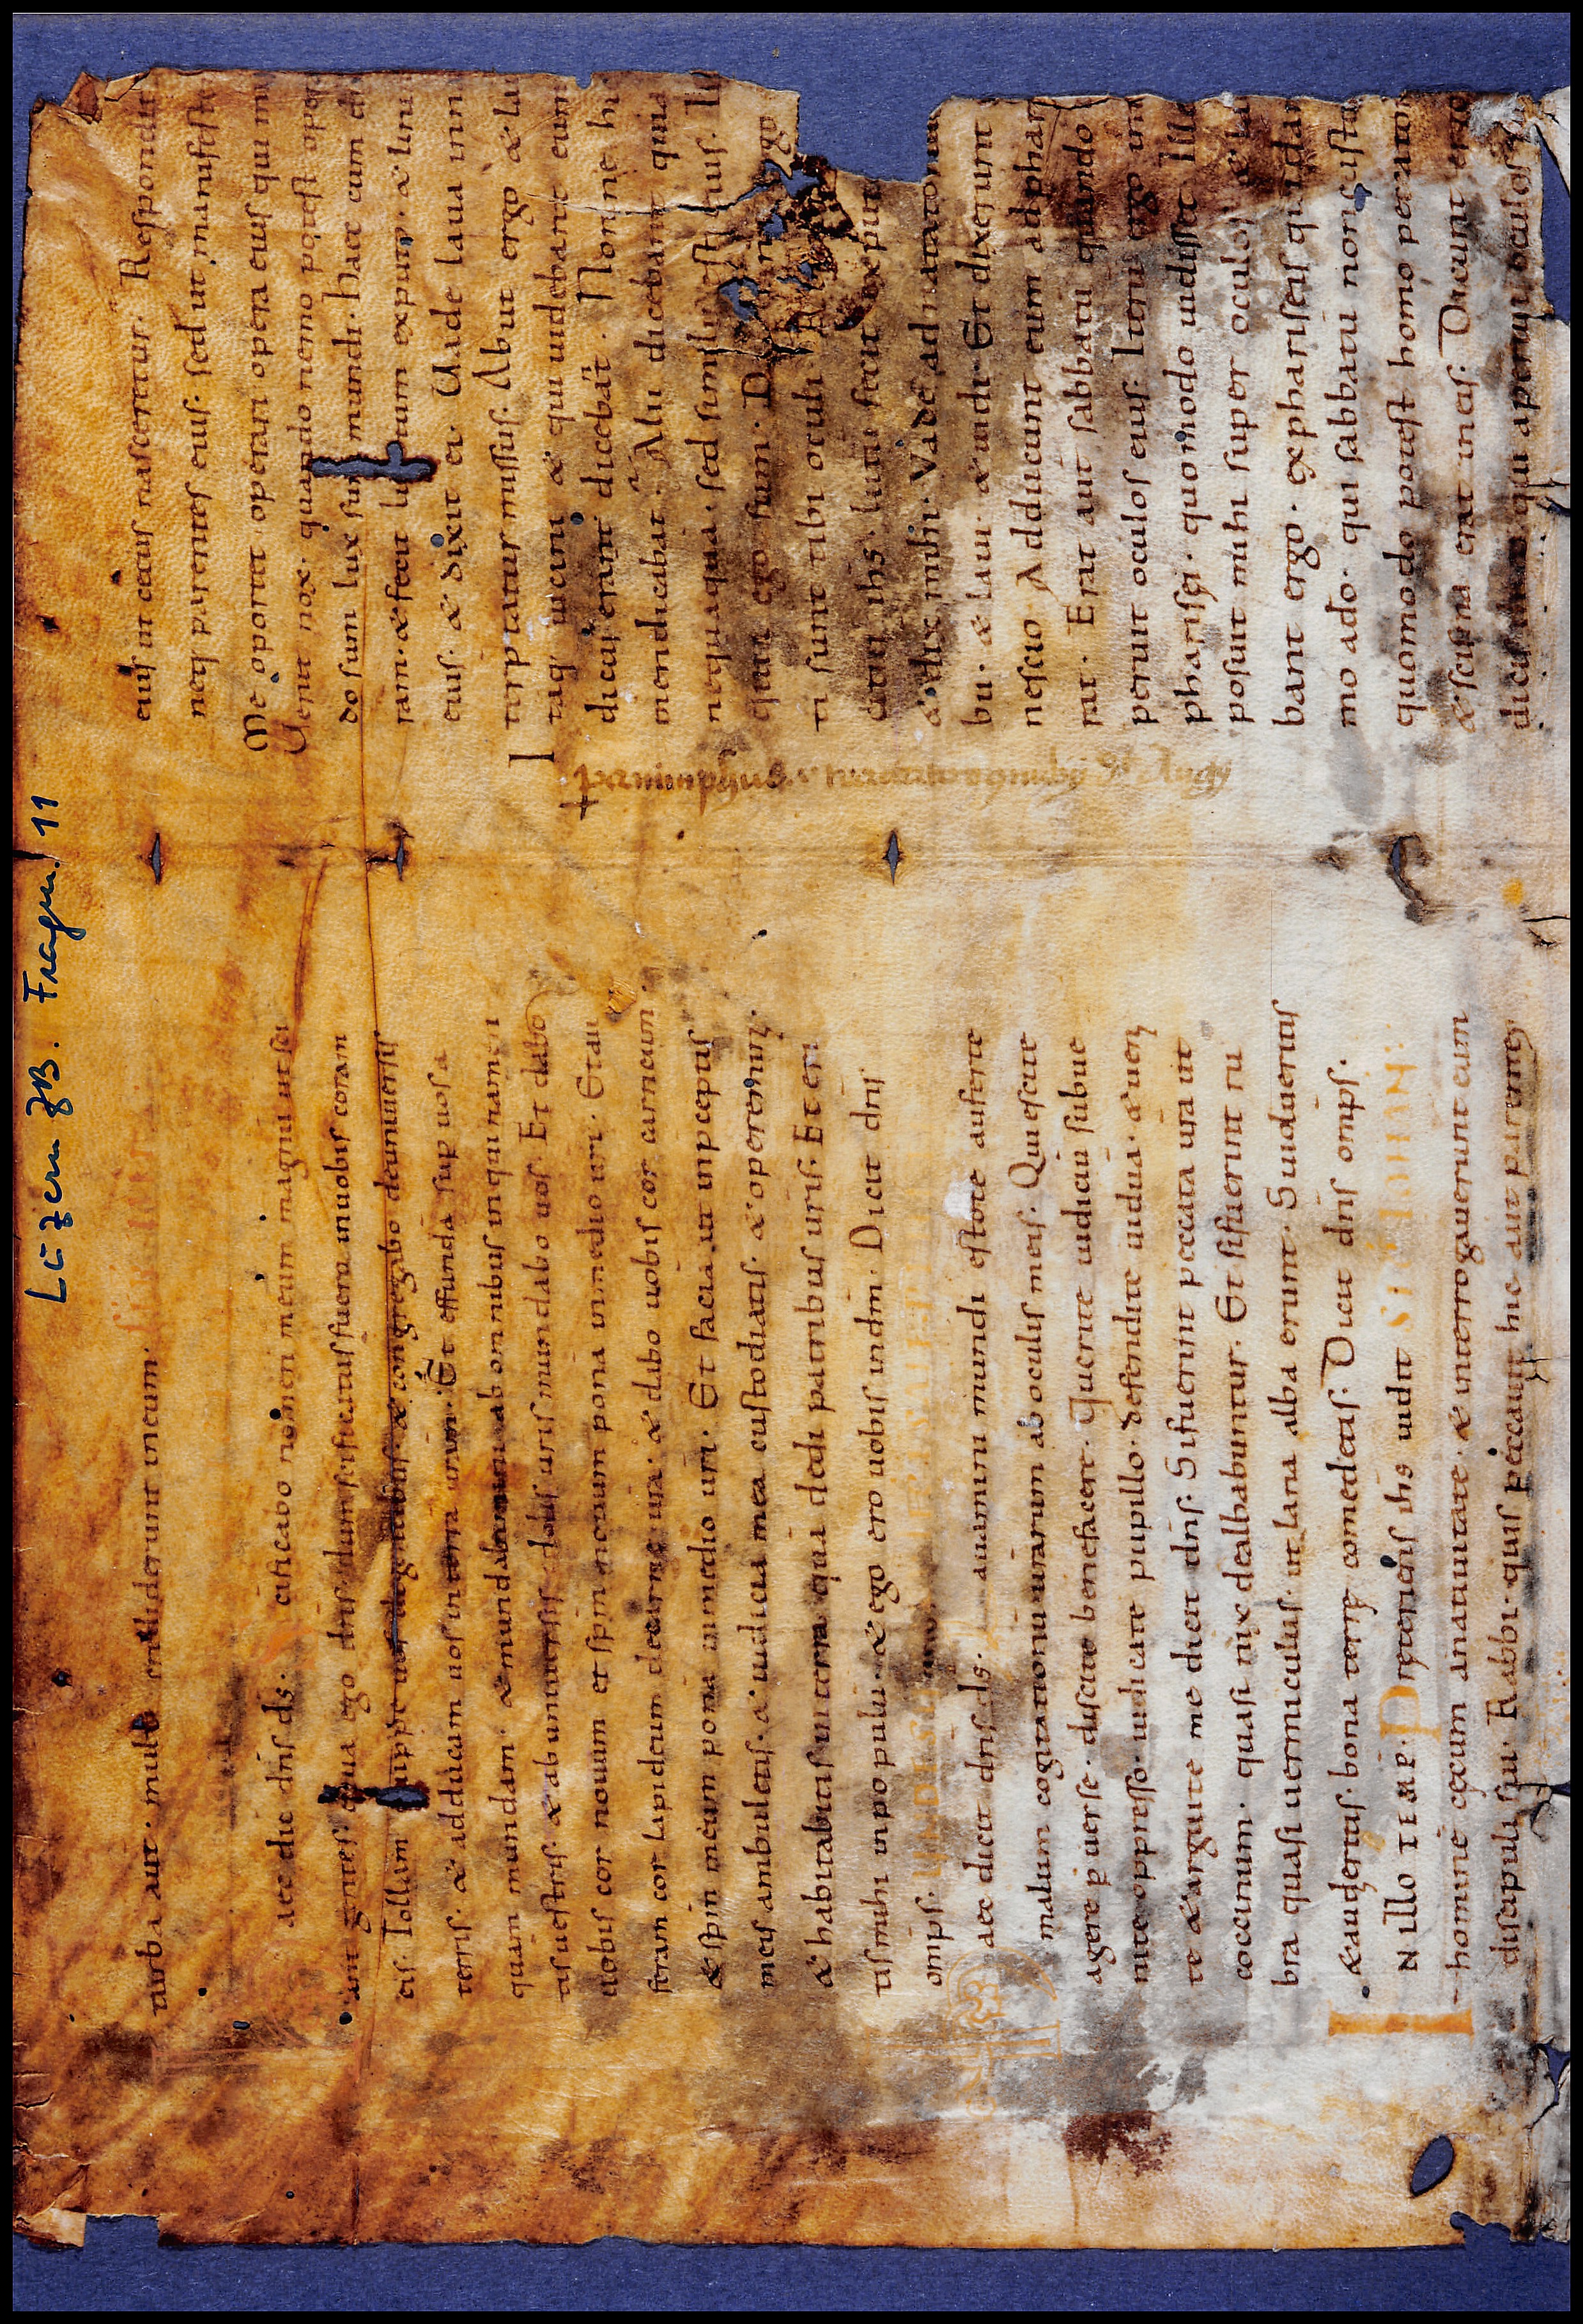 Luzern ZB. Fragm. 11
turba aut̄. multo crediderunt in eum.
aec dic̄ dn̄s ds̄. cificabo nomen meum magnū ut sci
ant gentes. quia ego dn̄s dum sc̄ificatus fuero in uobis coram
eis. Tollam quippe uos de gentibus. & congregabo de uniuersis
terris. & adducam uos in terrā urām. Et effundā sup uos a
quam mundam. & mundabimini ab omnibus inquinamen
tis uestris. & ab uniuersis idolis uris mundabo uos. Et dabo
uobis cor nouum et sp̄m nouum ponā in medio uri. Et au
feram cor lapideum de carne urā. & dabo uobis cor carneum.
& sp̄m meum ponā in medio uri. Et faciā ut in p̄ceptis
meis ambuletis. & iudicia mea custodiatis. & operemini.
& habitabitis in terra quā dedi patribus uris. Et eri
tis mihi in populū. & ego ero uobis in dm̄. Dicit dn̄s
omp̄s.
aec dicit dn̄s ds̄. Lauamini mundi estote auferte
malum cogitationū urarum ab oculis meis. Quiescite
agere puerse. discite benefacere. Querite iudiciū subue
nite oppresso. iudicate pupillo. defendite uiduā. & ueni
te & arguite me dicit dn̄s. Si fuerint peccata urā ut
coccinum. quasi nix dealbabuntur. Et si fuerint ru
bra quasi uermiculus. ut lana alba erunt. Si uolueritis
& audieritis. bona terrę comedetis. Dicit dn̄s omp̄s.
SCD IOHAN:
N ILLO TE&P. Pręteriens ih̄s uidit
hominē cęcum a natiuitate. & interrogauerunt eum
discipuli sui. Rabbi. quis peccauit hic aut parentes
eius ut cecus nasceretur. Respondit
neq; parentes eius. sed ut manifeste
Me oportet operari opera eius qui mi
Uenit nox. quando nemo potest oper
do sum lux sum mundi. Haec cum di
ram. & fecit lutum ex sputo. & lini
eius. & dixit ei. Uade laua in n
Interptatur missus. Abiit ergo & la
taq; uicini & qui uidebant eum
dicus erant dicebāt. Nonne hic
mendicabat. Alii dicebant quia
nequaquā. sed similis est eius. Il
quia ego sum.
ti sunt tibi oculi
ih̄s. lutū fecit ex sput
& dix mihi. Vade ad natatori
bii. & laui. & uidi. Et dixerunt
nescio Adducunt eum ad phari
rat. Erat aut̄ sabbatū quando
peruit oculos eius. Iterū ergo in
pharisęi. quomodo uidisset. Ille
posuit mihi super oculos & la
bant ergo. ex phariseis quidam
mo a do. qui sabbatū non custo
quomodo potest homo peccator
& scisma erat in eis. Dicunt ergo
dicis de eo qui aperuit oculos